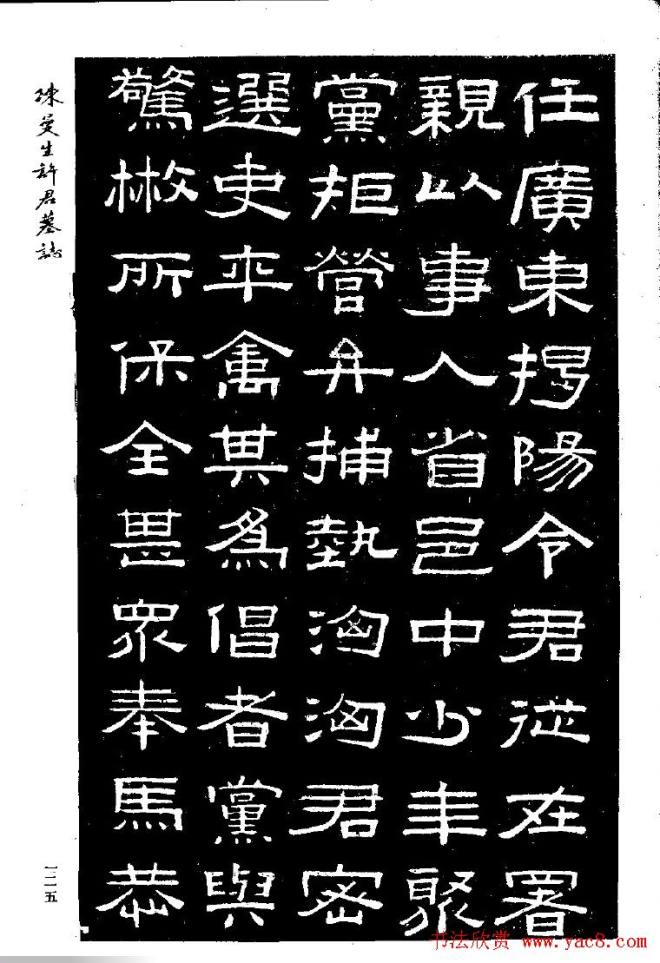 任廣東揭陽令君從在署
親以事入省邑中少年聚
黨拒營弁捕埶洶洶君密
選吏卒禽其為倡者黨與
驚㪔所保全甚眾奉馬恭
陳曼生許君墓誌
书法欣赏 www.yac8.com